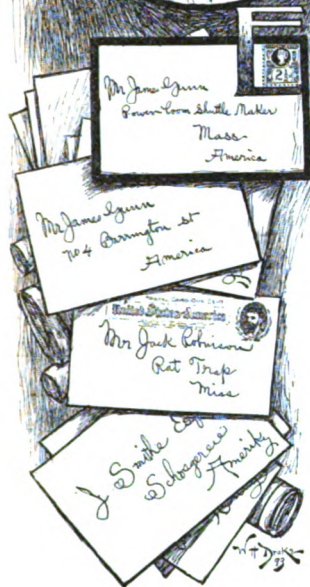 2½
Mr James Gunn
Power Loom Shuttle Maker
Mass.
America
Mr James Gunn
No 4 Barrington st
America
United States America
Mr Jack Robinson
Rat Trap
Miss
J Smithe Esq
Ameriky
W H Drake
93